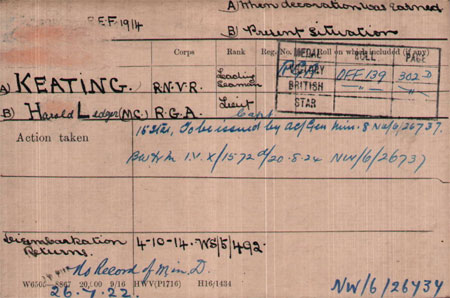 A) When decoration was earned
B) Present Situation
E.F. 1914
Corps Rank Reg. No. Roll on which included (if any)
MEDAL ROLL PAGE
VICTORY OFF 139 302 D
BRITISH " "
STAR
A) KEATING. R.N.V.R. Leading Seaman
B) Harold Ledger (MC) R.G.A. Lieut Capt
Action taken
15 Star, To be issued by Ac/Gen Min. 8 NW/6/26737.
I.V. X/1572 d/20.5.24 NW/6/26737
Disembarkation Returns. 4-10-14. WS/5/492.
No Record of Min. D.
W6505—8867 20,000 9/16 HWV(P1716) H16/1434
26.7.22. NW/6/26737